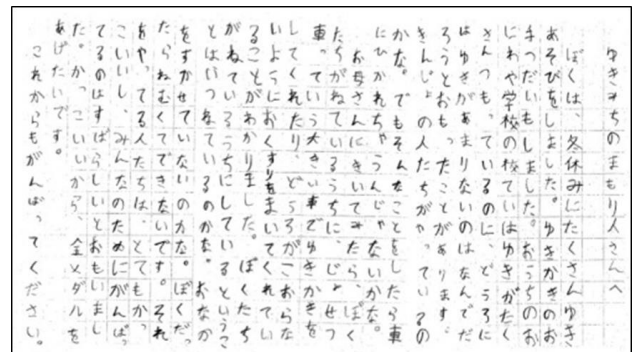 ゆきみちのまもり人さんへ
ぼくは、冬休みにたくさんゆき
あそびをしました。ゆきかきのお
手つだいもしました。おうちのお
にわや学校の校ていはゆきがたく
さんつもっているのに、どうろに
はゆきがあまりないのはなんでだ
ろうとおもったことがあります。
きんじょの人たちがやっているの
かな。でもそんなことをしたら車
にひかれちゃうんじゃないかな。
お母さんにきいてみたら、ぼく
たちがねているうちに、じょせつ
車っていう大きい車でゆきかきを
してくれたり、どうろがこおらな
いようにおくすりをまいてくれてい
ることがわかりました。ぼくたち
がねているうちにしているというこ
とはいつねているのかな。おなか
をすかせていないのかな。ぼくだっ
たらねむくてできないです。それ
をやってる人たちは、とてもかっ
こいいし、みんなのためにがんばっ
てるのはすばらしいとおもいまし
た。かっこいいから、金メダルを
あげたいです。
これからもがんばってください。